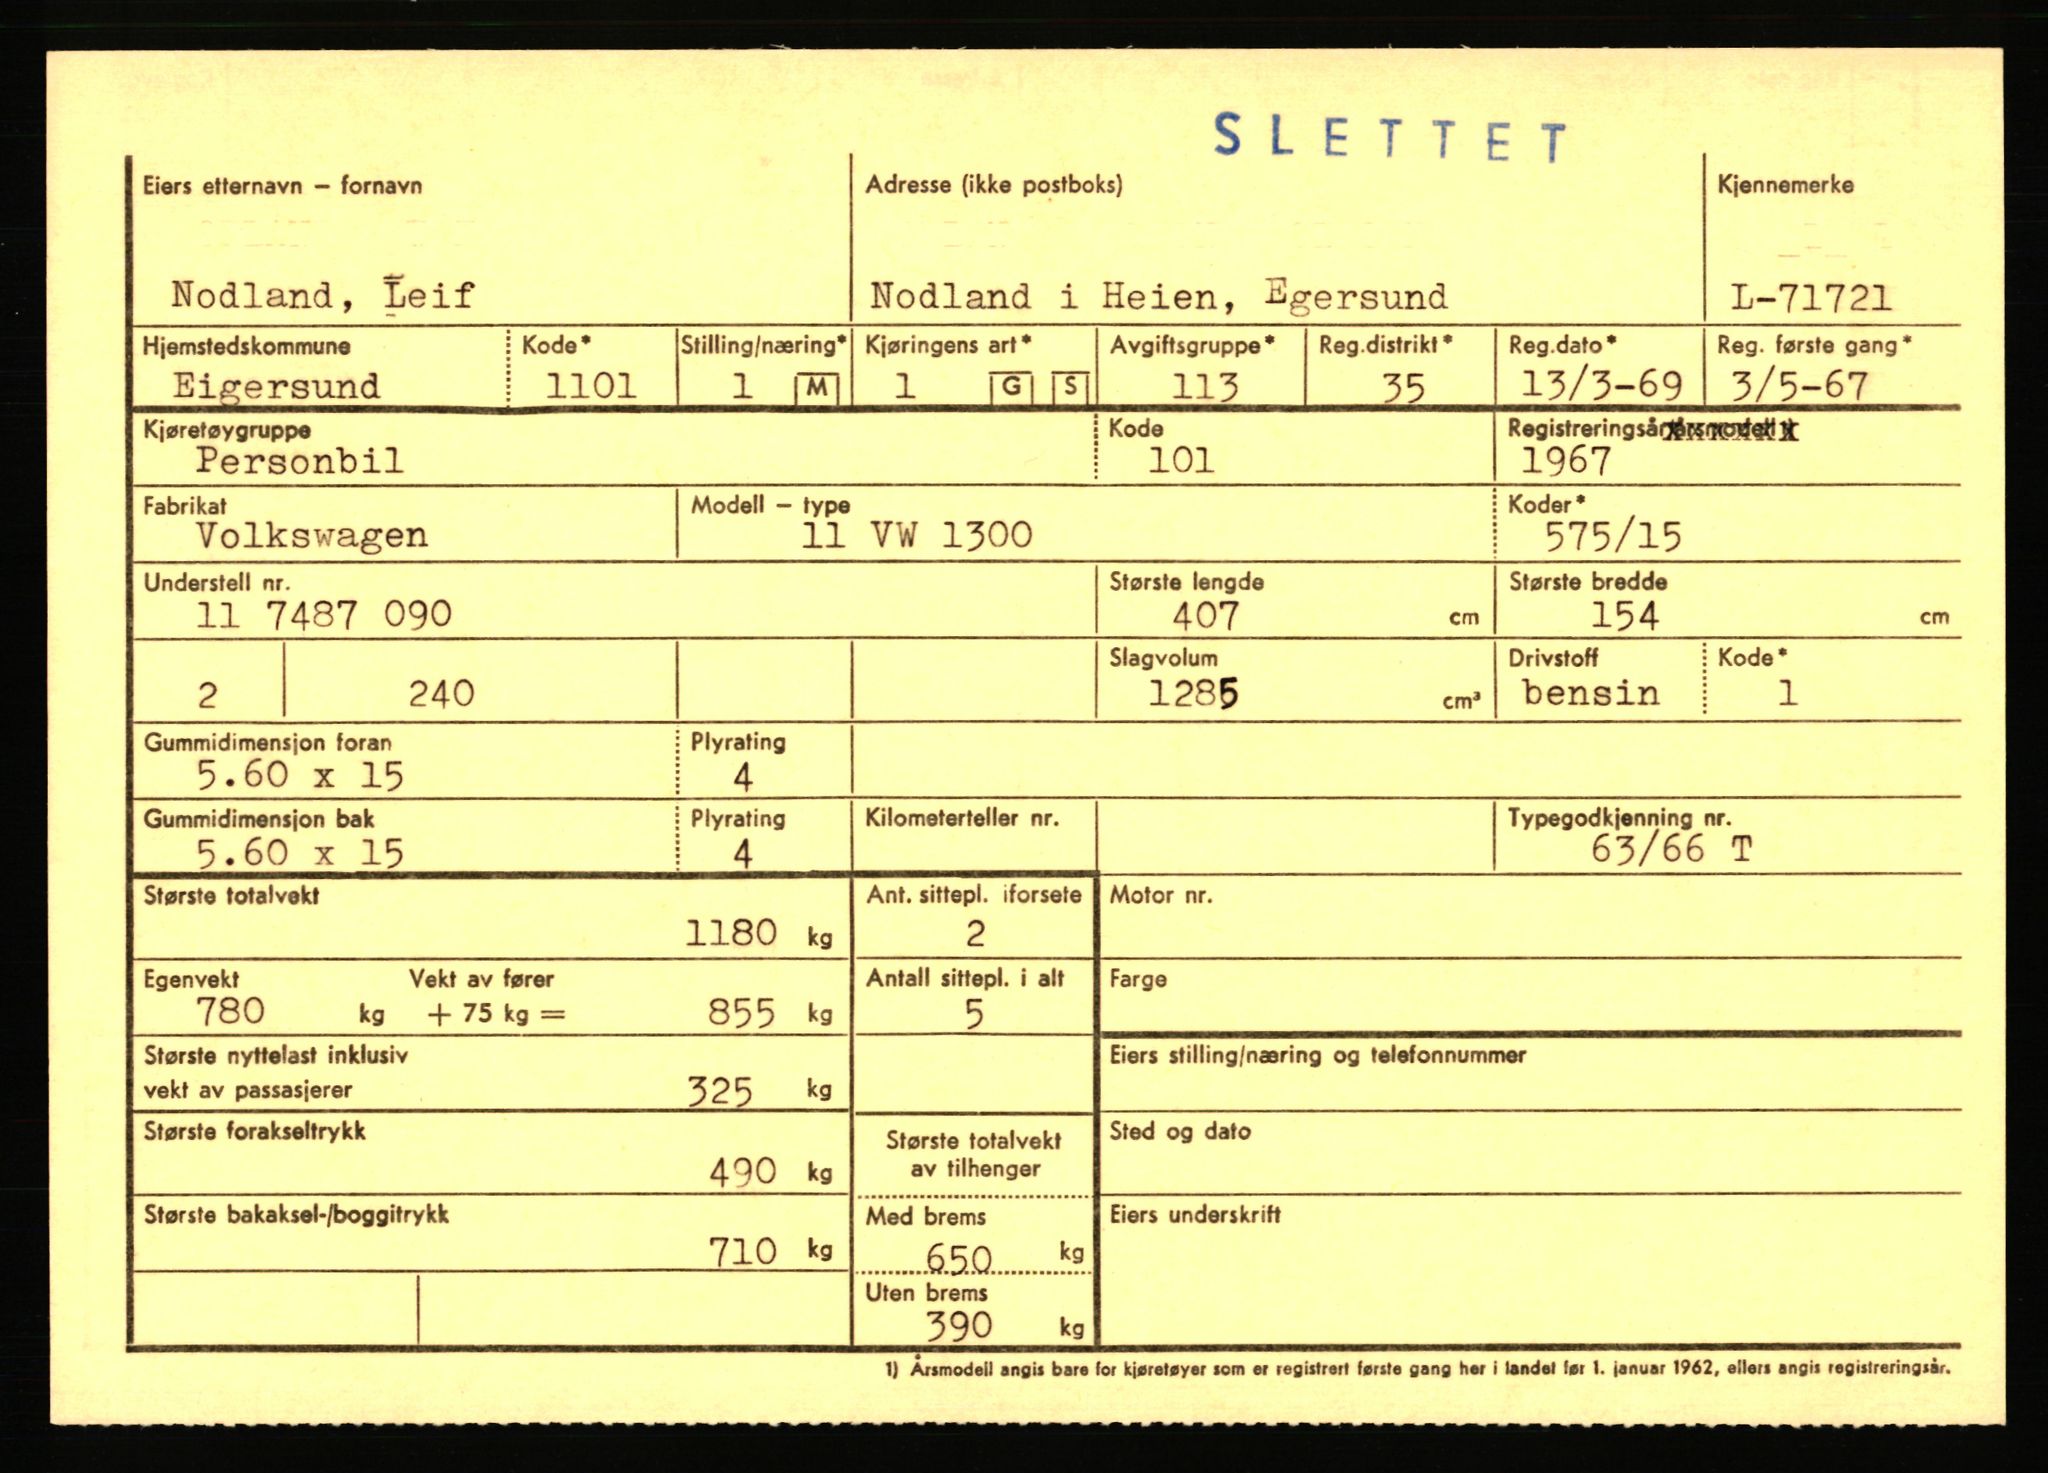 SLETTET
Eiers etternavn – fornavn Adresse (ikke postboks) Kjennemerke
Nodland, Leif Nodland i Heien, Egersund L-71721
Hjemstedskommune Kode* Stilling/næring* Kjøringens art* Avgiftsgruppe* Reg.distrikt* Reg.dato* Reg. første gang*
Eigersund 1101 1 M 1 G S 113 35 13/3-69 3/5-67
Kjøretøygruppe Kode Registreringsår/årsmodell
Personbil 101 1967
Fabrikat Modell – type Koder*
Volkswagen 11 VW 1300 575/15
Understell nr. Største lengde Største bredde
11 7487 090 407 cm 154 cm
Slagvolum Drivstoff Kode*
2 240 1285 cm³ bensin 1
Gummidimensjon foran Plyrating
5.60 x 15 4
Gummidimensjon bak Plyrating Kilometerteller nr. Typegodkjenning nr.
5.60 x 15 4 63/66 T
Største totalvekt Ant. sittepl. iforsete Motor nr.
1180 kg 2
Egenvekt Vekt av fører Antall sittepl. i alt Farge
780 kg + 75 kg = 855 kg 5
Største nyttelast inklusiv Eiers stilling/næring og telefonnummer
vekt av passasjerer 325 kg
Største forakseltrykk Største totalvekt Sted og dato
490 kg av tilhenger
Største bakaksel-/boggitrykk Med brems Eiers underskrift
710 kg 650 kg
Uten brems
390 kg
1) Årsmodell angis bare for kjøretøyer som er registrert første gang her i landet før 1. januar 1962, ellers angis registreringsår.